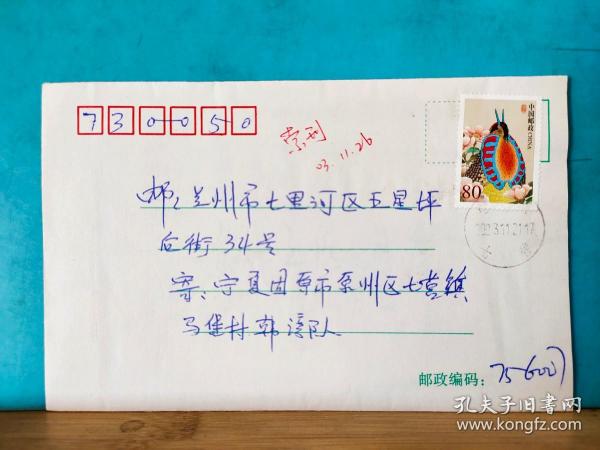 730050
索刊
03.11.26
中国邮政 CHINA
80
2003.11.21.17
邮:兰州市七里河区五星坪
后街34号
寄:宁夏固原市原州区七营镇
马堡村韩湾队
邮政编码:756007
孔夫子旧书网
www.kongfz.com